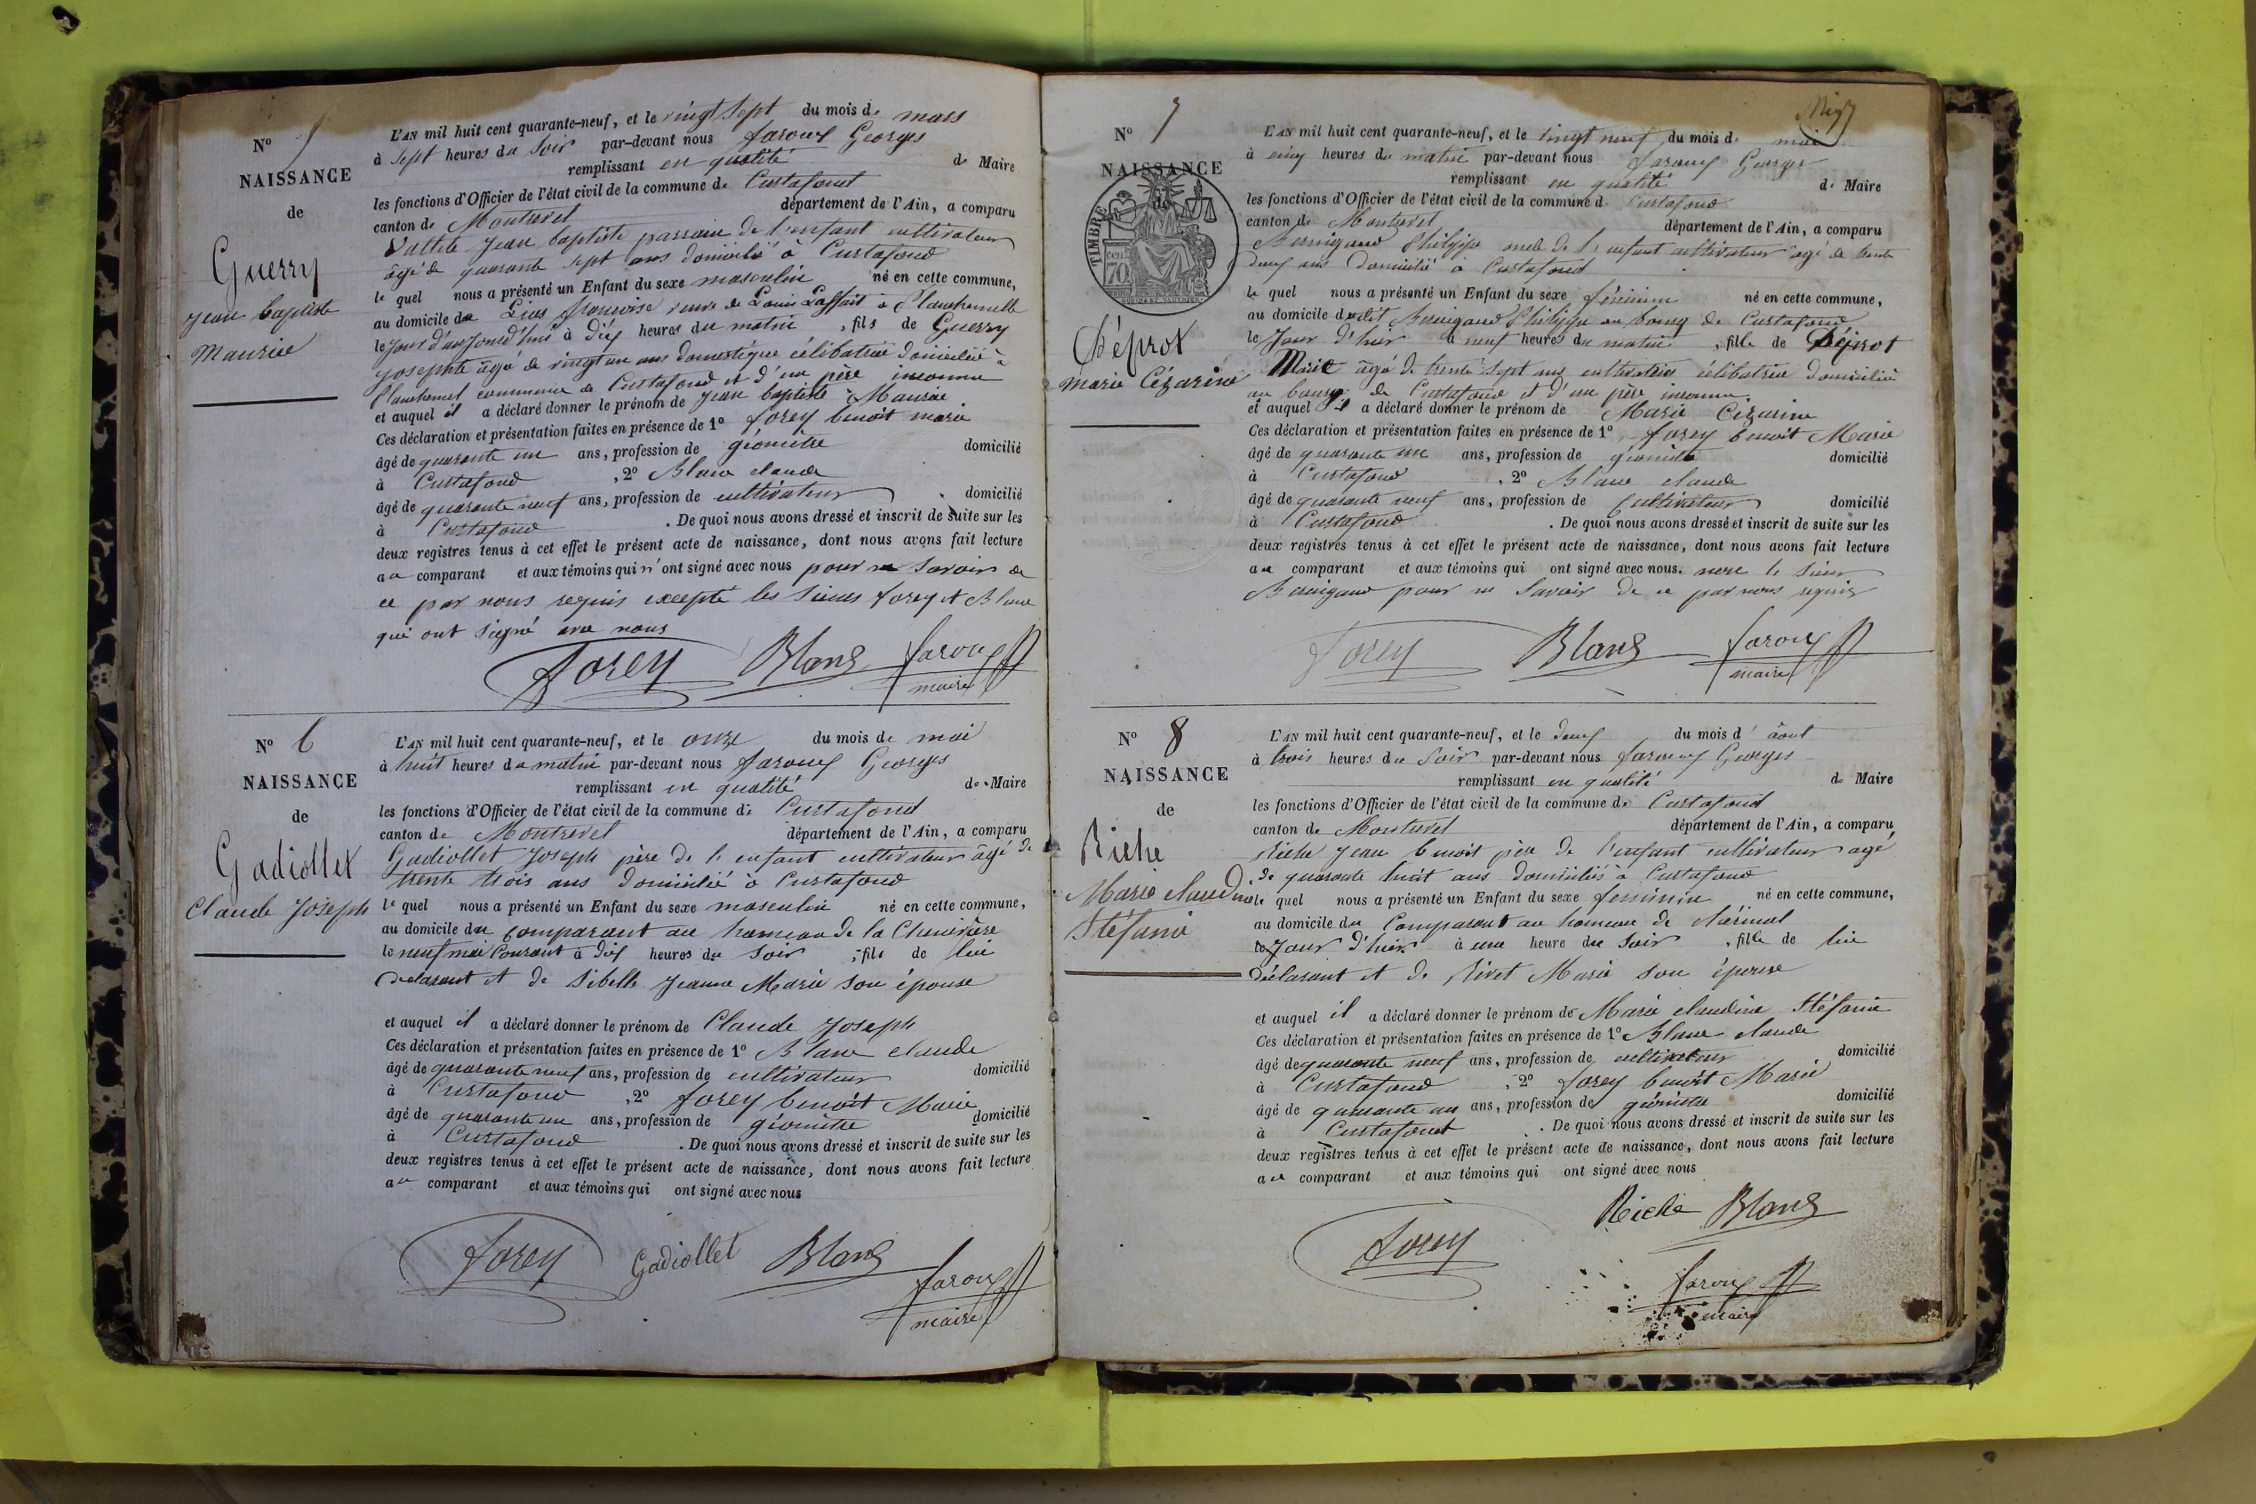 N° 5
NAISSANCE
de
Guerry
jean baptiste
Maurice
L'AN mil huit cent quarante-neuf, et le vingt sept du mois de mars
à sept heures du soir par-devant nous faroux Georges
remplissant en qualité de Maire
les fonctions d'Officier de l'état civil de la commune de Curtafond
canton de Montrevel département de l'Ain, a comparu
jean baptiste parrain de l'enfant cultivateur
âgé de quarante sept ans domicilié à Curtafond
le quel nous a présenté un Enfant du sexe masculin né en cette commune,
au domicile de françoise veuve de Louis Laffait à
le jour d'aujourd'hui à dix heures du matin, fils de Guerry
josephte âgé de vingt un ans domestique célibatrice domiciliée à
commune de Curtafond et d'un père inconnu
et auquel il a déclaré donner le prénom de jean baptiste Maurice
Ces déclaration et présentation faites en présence de 1° forey benoit marie
âgé de quarante un ans, profession de géomètre domicilié
à Curtafond, 2° Blanc claude
âgé de quarante neuf ans, profession de cultivateur domicilié
à Curtafond. De quoi nous avons dressé et inscrit de suite sur les
deux registres tenus à cet effet le présent acte de naissance, dont nous avons fait lecture
au comparant et aux témoins qui n'ont signé avec nous pour ne savoir de
ce par nous requis excepté les sieurs forey et Blanc
qui ont signé avec nous
forey Blanc faroux
maire
N° 6
NAISSANCE
de
Gadiollet
Claude Joseph
L'AN mil huit cent quarante-neuf, et le onze du mois de mai
à huit heures du matin par-devant nous faroux Georges
remplissant en qualité de Maire
les fonctions d'Officier de l'état civil de la commune de Curtafond
canton de Montrevel département de l'Ain, a comparu
Gadiollet Joseph père de l'enfant cultivateur âgé de
trente trois ans domicilié à Curtafond
le quel nous a présenté un Enfant du sexe masculin né en cette commune,
au domicile du comparant au hameau de la Chenevière
le neuf mai Courant à dix heures du soir, fils de lui
déclarant et de Sibelle Jeanne Marie son épouse
et auquel il a déclaré donner le prénom de Claude Joseph
Ces déclaration et présentation faites en présence de 1° Blanc claude
âgé de quarante neuf ans, profession de cultivateur domicilié
à Curtafond, 2° forey benoit Marie
âgé de quarante un ans, profession de géomètre domicilié
à Curtafond. De quoi nous avons dressé et inscrit de suite sur les
deux registres tenus à cet effet le présent acte de naissance, dont nous avons fait lecture
au comparant et aux témoins qui ont signé avec nous
forey Gadiollet Blanc faroux
maire
N° 7
NAISSANCE
de
TIMBRE
cen 70
Déprost
Marie Cézarine
L'AN mil huit cent quarante-neuf, et le vingt neuf du mois de mai
à cinq heures du matin par-devant nous faroux Georges
remplissant en qualité de Maire
les fonctions d'Officier de l'état civil de la commune de Curtafond
canton de Montrevel département de l'Ain, a comparu
Bernigaud Philippe oncle de l'enfant cultivateur âgé de trente
deux ans domicilié à Curtafond
le quel nous a présenté un Enfant du sexe féminin né en cette commune,
au domicile dudit Bernigaud Philippe au bourg de Curtafond
le jour d'hier à neuf heures du matin, fille de Déprost
Marie âgé de trente sept ans cultivatrice célibatrice domiciliée
au bourg de Curtafond et d'un père inconnu
et auquel il a déclaré donner le prénom de Marie Cézarine
Ces déclaration et présentation faites en présence de 1° forey benoit Marie
âgé de quarante un ans, profession de géomètre domicilié
à Curtafond, 2° Blanc claude
âgé de quarante neuf ans, profession de Cultivateur domicilié
à Curtafond. De quoi nous avons dressé et inscrit de suite sur les
deux registres tenus à cet effet le présent acte de naissance, dont nous avons fait lecture
au comparant et aux témoins qui ont signé avec nous. non le sieur
Bernigaud pour ne savoir de ce par nous requis
forey Blanc faroux
maire
N° 8
NAISSANCE
de
Riche
Marie claudine
Stéfanie
L'AN mil huit cent quarante-neuf, et le deux du mois d'août
à trois heures du soir par-devant nous faroux Georges
remplissant en qualité de Maire
les fonctions d'Officier de l'état civil de la commune de Curtafond
canton de Montrevel département de l'Ain, a comparu
Riche jean benoit père de l'enfant cultivateur agé
de quarante huit ans domicilié à Curtafond
le quel nous a présenté un Enfant du sexe féminin né en cette commune,
au domicile du Comparant au hameau de
le jour d'hier à une heure du soir, fille de lui
déclarant et de Rivet Marie son épouse
et auquel il a déclaré donner le prénom de Marie claudine Stéfanie
Ces déclaration et présentation faites en présence de 1° Blanc claude
âgé de quarante neuf ans, profession de cultivateur domicilié
à Curtafond, 2° forey benoit Marie
âgé de quarante un ans, profession de géomètre domicilié
à Curtafond. De quoi nous avons dressé et inscrit de suite sur les
deux registres tenus à cet effet le présent acte de naissance, dont nous avons fait lecture
au comparant et aux témoins qui ont signé avec nous
Riche Blanc
forey
faroux
maire